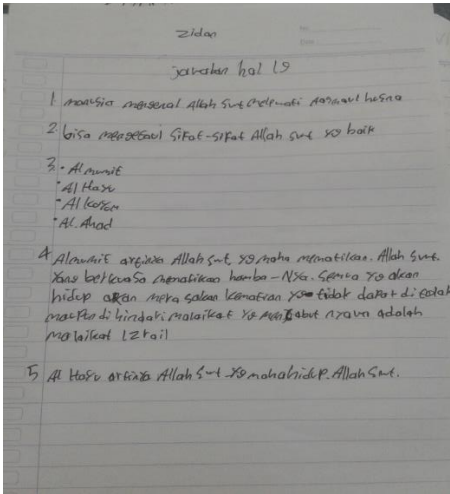 Zidan
jawaban hal 19
1 manusia mengenal Allah Swt melewati asmaul husna
2 bisa mengetahui sifat-sifat Allah Swt yg baik
3 • Al mumit
• Al Hayu
• Al koyum
• Al. Ahad
4 Al mumit artinya Allah Swt yg maha mematikan. Allah Swt.
yang berkuasa mematikan hamba-Nya. Semua yg akan
hidup akan merasakan kematian yg tidak dapat di tolak
maupun di hindari malaikat yg mencabut nyawa adalah
malaikat Izrail
5 Al Hayu artinya Allah Swt yg maha hidup. Allah Swt.